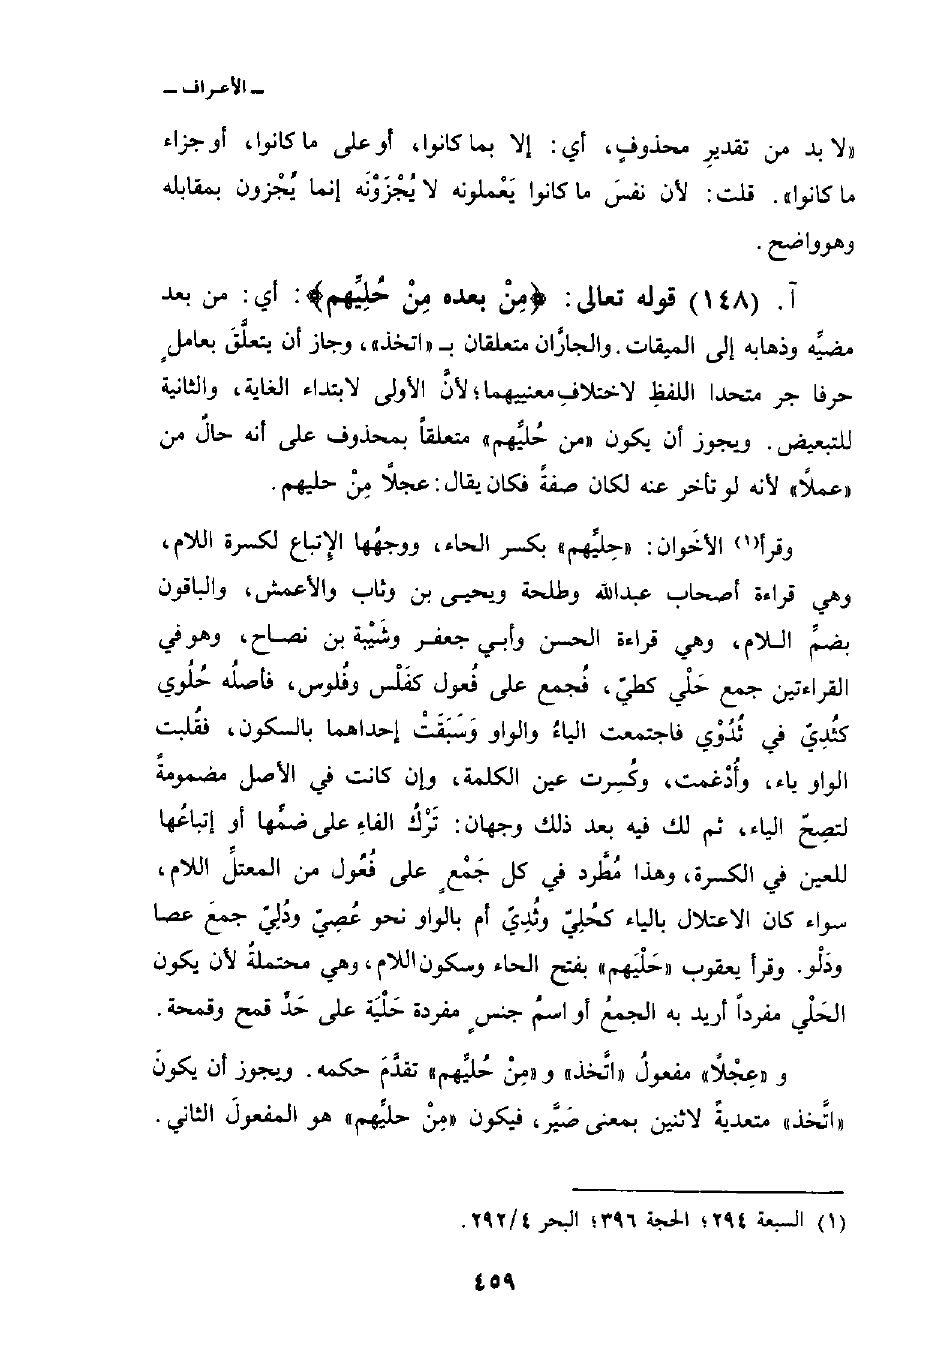 ـ الأعراف ـ
«لا بد من تقديرِ محذوفٍ، أي: إلا بما كانوا، أو على ما كانوا، أو جزاء
ما كانوا». قلت: لأن نفسَ ما كانوا يَعْملونه لا يُجْزَوْنَه إنما يُجْزون بمقابله
وهو واضح.
آ. (١٤٨) قوله تعالى: ﴿مِنْ بعده مِنْ حُلِيِّهم﴾: أي: من بعد
مضيِّه وذهابه إلى الميقات. والجارَّان متعلقان بـ «اتخذ»، وجاز أن يتعلَّقَ بعاملٍ
حرفا جر متحدا اللفظِ لاختلافِ معنييهما؛ لأنَّ الأولى لابتداء الغاية، والثانية
للتبعيض. ويجوز أن يكون «من حُليِّهم» متعلقاً بمحذوف على أنه حالٌ من
«عملًا» لأنه لو تأخر عنه لكان صفةً فكان يقال: عجلًا مِنْ حليهم.
وقرأ(١) الأخَوان: «حِليِّهم» بكسر الحاء، ووجهُها الإِتباع لكسرة اللام،
وهي قراءة أصحاب عبدالله وطلحة ويحيى بن وثاب والأعمش، والباقون
بضمِّ اللام، وهي قراءة الحسن وأبي جعفر وشَيْبة بن نصاح، وهو في
القراءتين جمع حَلْي كطيّ، فجُمع على فُعول كفَلْس وفُلوس، فأصلُه حُلُوي
كثُدِيّ في ثُدُوْي فاجتمعت الياءُ والواو وَسَبَقَتْ إحداهما بالسكون، فقُلبت
الواو ياء، وأُدْغمت، وكُسِرت عين الكلمة، وإن كانت في الأصل مضمومةً
لتصِحّ الياء، ثم لك فيه بعد ذلك وجهان: تَرْكُ الفاءِ على ضمِّها أو إتباعُها
للعين في الكسرة، وهذا مُطَّرد في كل جَمْعٍ على فُعُول من المعتلِّ اللام،
سواء كان الاعتلال بالياء كحُلِيّ وثُدِيّ أم بالواو نحو عُصِيّ ودُلِيّ جمعَ عصا
ودَلْو. وقرأ يعقوب «حَلْيَهم» بفتح الحاء وسكون اللام، وهي محتملةٌ لأن يكون
الحَلْي مفرداً أريد به الجمعُ أو اسمُ جنسٍ مفردة حَلْيَة على حَدِّ قمح وقمحة.
و «عِجْلًا» مفعولُ «اتَّخذ» و «مِنْ حُليِّهم» تقدَّمَ حكمه. ويجوز أن يكونَ
«اتَّخذ» متعديةً لاثنين بمعنى صَيَّر، فيكون «مِنْ حليِّهم» هو المفعولَ الثاني.
(١) السبعة ٢٩٤؛ الحجة ٣٩٦؛ البحر ٤/٢٩٢.
٤٥٩